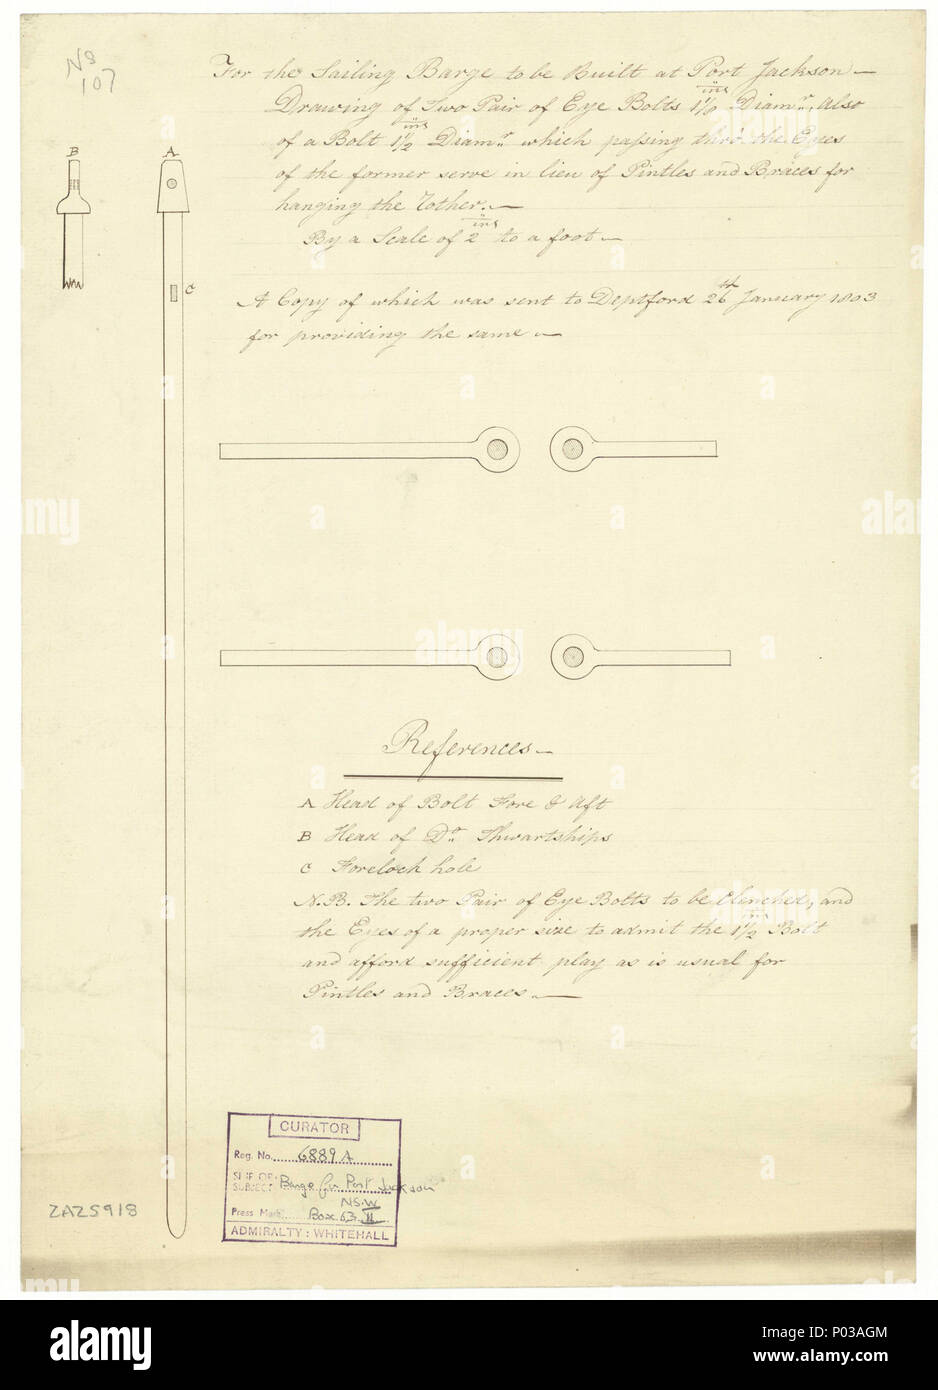 No
107
For the Sailing Barge to be Built at Port Jackson —
Drawing of Two Pair of Eye Bolts 1⅛ ins Diamr, also
of a Bolt 1½ ins Diamr which passing thro' the Eyes
of the former serve in lieu of Pintles and Braces for
hanging the Rother. —
By a Scale of 2 ins to a foot —
B
A
C
A Copy of which was sent to Deptford 26th January 1803
for providing the same —
References —
A Head of Bolt Fore & Aft
B Head of Do Thwartships
C Forelock hole
N.B. The two Pair of Eye Bolts to be Clenched, and
the Eyes of a proper size to admit the 1½ ins Bolt
and afford sufficient play as is usual for
Pintles and Braces. —
CURATOR
Reg. No. 6889A
SHIP OR SUBJECT Barge for Port Jackson
N.S.W
Press Mark Box 63 II
ADMIRALTY : WHITEHALL
ZAZ5918
alamy
Image ID: P03AGM
www.alamy.com